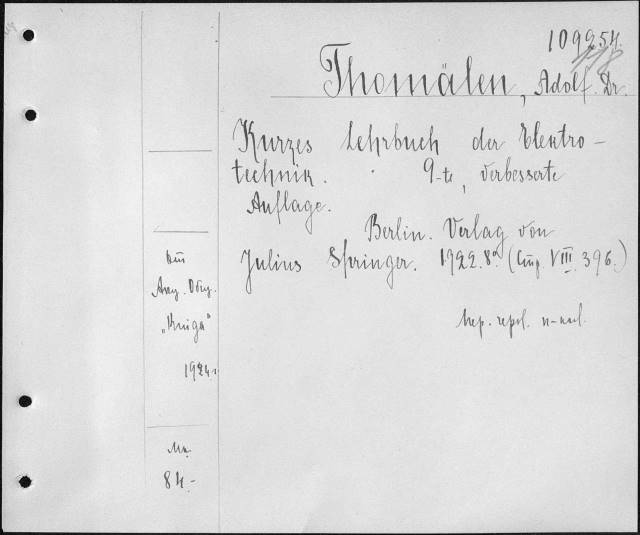 109254.
Thomälen, Adolf. Dr.
Kurzes Lehrbuch der Elektro-
technik. 9-te, verbesserte
Auflage.
Berlin. Verlag von
Julius Springer. 1922. 8°. (VIII. 396.)
"Kniga"
1924.
84.-